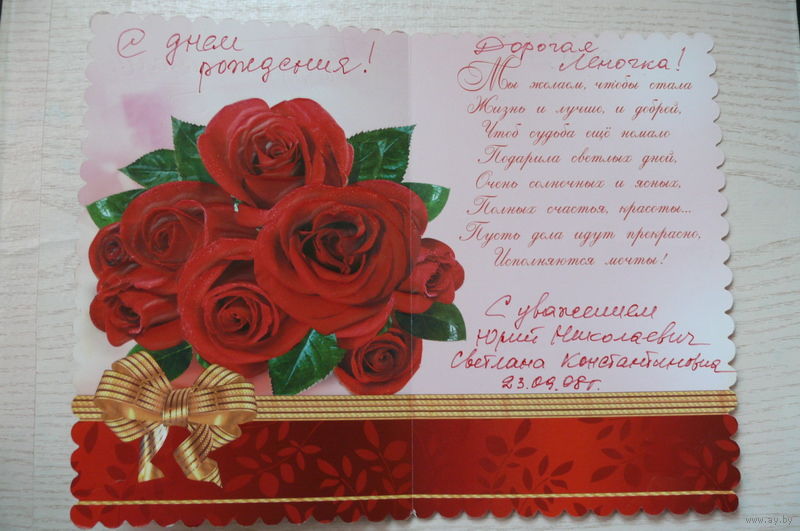 С днем
рождения!
Дорогая
Леночка!
Мы желаем, чтобы стала
Жизнь и лучше, и добрей,
Чтоб судьба ещё немало
Подарила светлых дней,
Очень солнечных и ясных,
Полных счастья, красоты...
Пусть дела идут прекрасно,
Исполняются мечты!
С уважением
Юрий Николаевич
Светлана Константиновна
23.09.08г.
www.ay.by